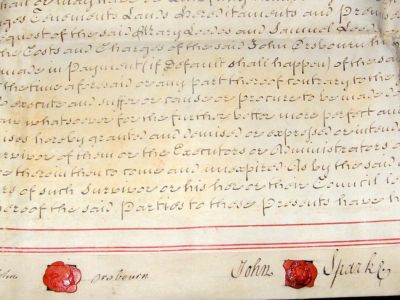 ges Tenements Lands Hereditaments and Premis
equest of the said Mary Leades and Samuel Lea
the Costs and Charges of the said John Orsbourn h
made in Payment (if Default shall happen) of the sa
the time aforesaid or any part thereof contrary to the
execute and suffer or cause or procure to be made d
aw whatsoever for the further better more perfect an
ises hereby granted and demised or expressed or intend
rvivor of them or the Executors or Administrators o
therein then to come and unexpired As by the said
rs of such Survivor or his her or their Council l
hereof the said Parties to these Presents have h
ohn Orsbourn John Sparke